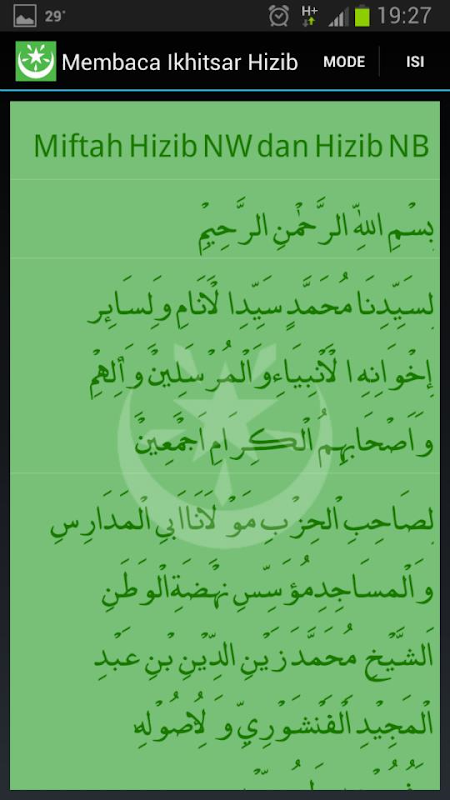 29°
H+
19:27
Membaca Ikhitsar Hizib
MODE
ISI
Miftah Hizib NW dan Hizib NB
بِسْمِ اللهِ الرَّحْمٰنِ الرَّحِيْمِ
لِسَيِّدِنَا مُحَمَّدٍ سَيِّدِا لْاَنَامِ وَلِسَائِرِ
إِخْوَانِهِ ا لْاَنْبِيَاءِ وَالْمُرْسَلِيْنَ وَاٰلِهِمْ
وَاَصْحَابِهِمُ الْكِرَامِ اَجْمَعِيْنَ
لِصَاحِبِ الْحِزْبِ مَوْ لَانَا اَبِي الْمَدَارِسِ
وَالْمسَاجِدِ مُؤَسِّسِ نَهْضَةِ الْوَطَنِ
اَلشَّيْخِ مُحَمَّدَ زَيْنِ الدِّيْنِ بْنِ عَبْدِ
الْمَجِيْدِ الْفَنْشَوْرِيِّ وَ لِاُصُوْلِهِ